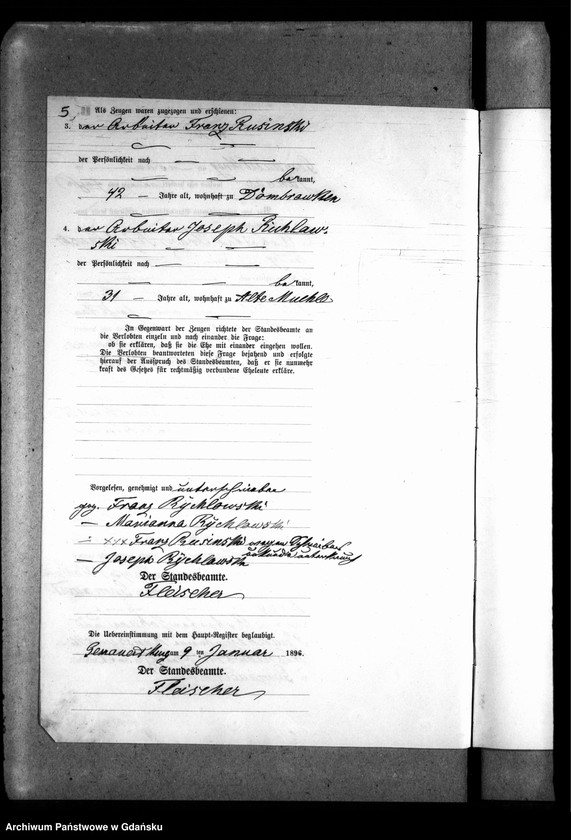 5
Als Zeugen waren zugezogen und erschienen:
3. der Arbeiter Franz Rusinski
der Persönlichkeit nach
bekannt,
42 Jahre alt, wohnhaft zu Dombrowken
4. der Arbeiter Joseph Richlaw-
ski
der Persönlichkeit nach
bekannt,
31 Jahre alt, wohnhaft zu Alte Muehle
In Gegenwart der Zeugen richtete der Standesbeamte an
die Verlobten einzeln und nach einander die Frage:
ob sie erklären, daß sie die Ehe mit einander eingehen wollen.
Die Verlobten beantworteten diese Frage bejahend und erfolgte
hierauf der Ausspruch des Standesbeamten, daß er sie nunmehr
kraft des Gesetzes für rechtmäßig verbundene Eheleute erkläre.
Vorgelesen, genehmigt und unterschrieben
gez. Franz Rÿchlowski
— Marianna Rÿchlowski
÷ xxx Franz Rusinski wegen Schreibens
— Joseph Rÿchlawski
Der Standesbeamte.
Fleischer
Die Uebereinstimmung mit dem Haupt-Register beglaubigt.
am 9 ten Januar 1896.
Der Standesbeamte.
Fleischer
Archiwum Państwowe w Gdańsku